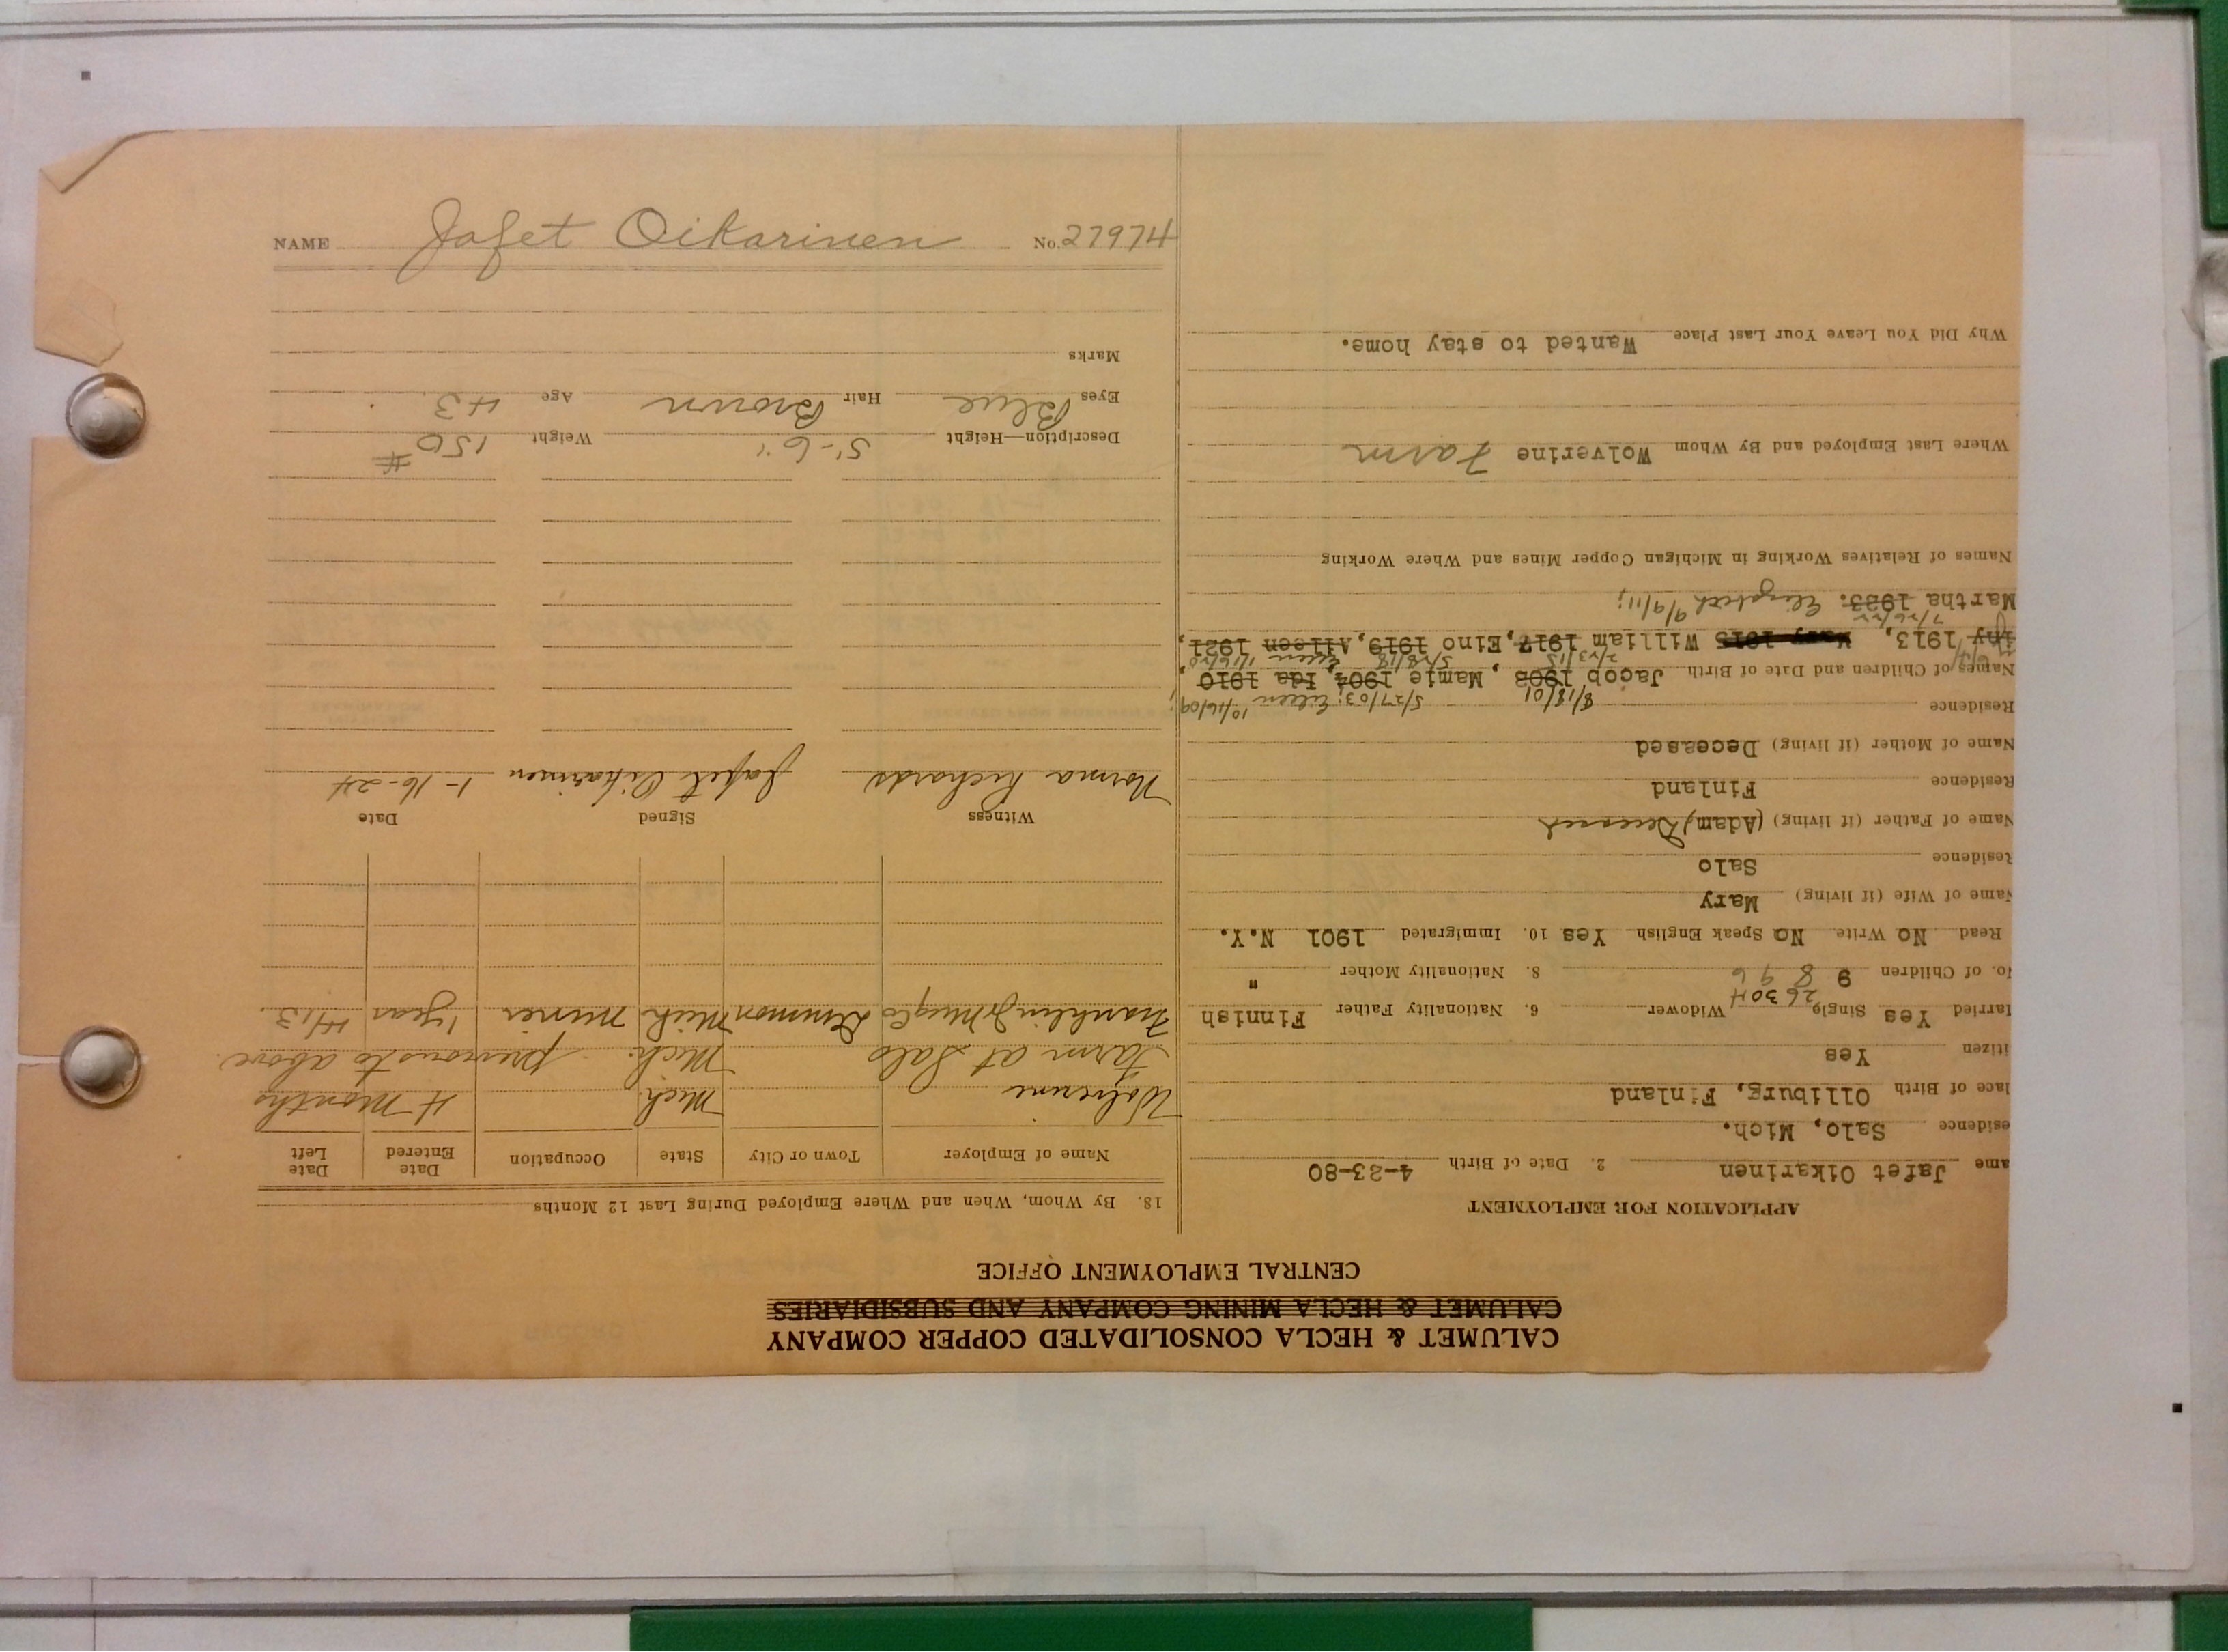 CALUMET & HECLA CONSOLIDATED COPPER COMPANY
CALUMET & HECLA MINING COMPANY AND SUBSIDIARIES
CENTRAL EMPLOYMENT OFFICE
APPLICATION FOR EMPLOYMENT
ame Jafet Oikarinen 2. Date of Birth 4-23-80
esidence Salo, Mich.
lace of Birth Olliburg, Finland
itizen Yes
arried Yes Single Widower 6. Nationality Father Finnish
26 30 H
o. of Children 9 8 9 6 8. Nationality Mother "
Read No Write No Speak English Yes 10. Immigrated 1901 N.Y.
Name of Wife (if living) Mary
Residence Salo
Name of Father (if living) (Adam) Deceased
Residence Finland
Name of Mother (if living) Deceased
Residence
8/18/01 5/27/03; Eileen 10/16/09;
Names of Children and Date of Birth Jacob 1902, Mamie 1904, Ida 1910,
2/23/15 5/28/18 Eileen 1/16/20
1913, Mary 1915 William 1917, Eino 1919, Aileen 1921,
7/26/22
Martha 1923. Elizabeth 9/9/11;
Names of Relatives Working in Michigan Copper Mines and Where Working
Where Last Employed and By Whom Wolverine Farm
Why Did You Leave Your Last Place Wanted to stay home.
18. By Whom, When and Where Employed During Last 12 Months
Name of Employer Town or City State Occupation Date Entered Date Left
Wolverine Mich. 4 Months
Farm at Salo Mich. previous to above.
Franklin Jr Mng Co Demmon Mich Miner 1 year 1913.
Witness Signed Date
Norma Richards Jafet Oikarinen 1-16-24
Description—Height 5'-6" Weight 150 #
Eyes Blue Hair Brown Age 43
Marks
NAME Jafet Oikarinen No. 27974